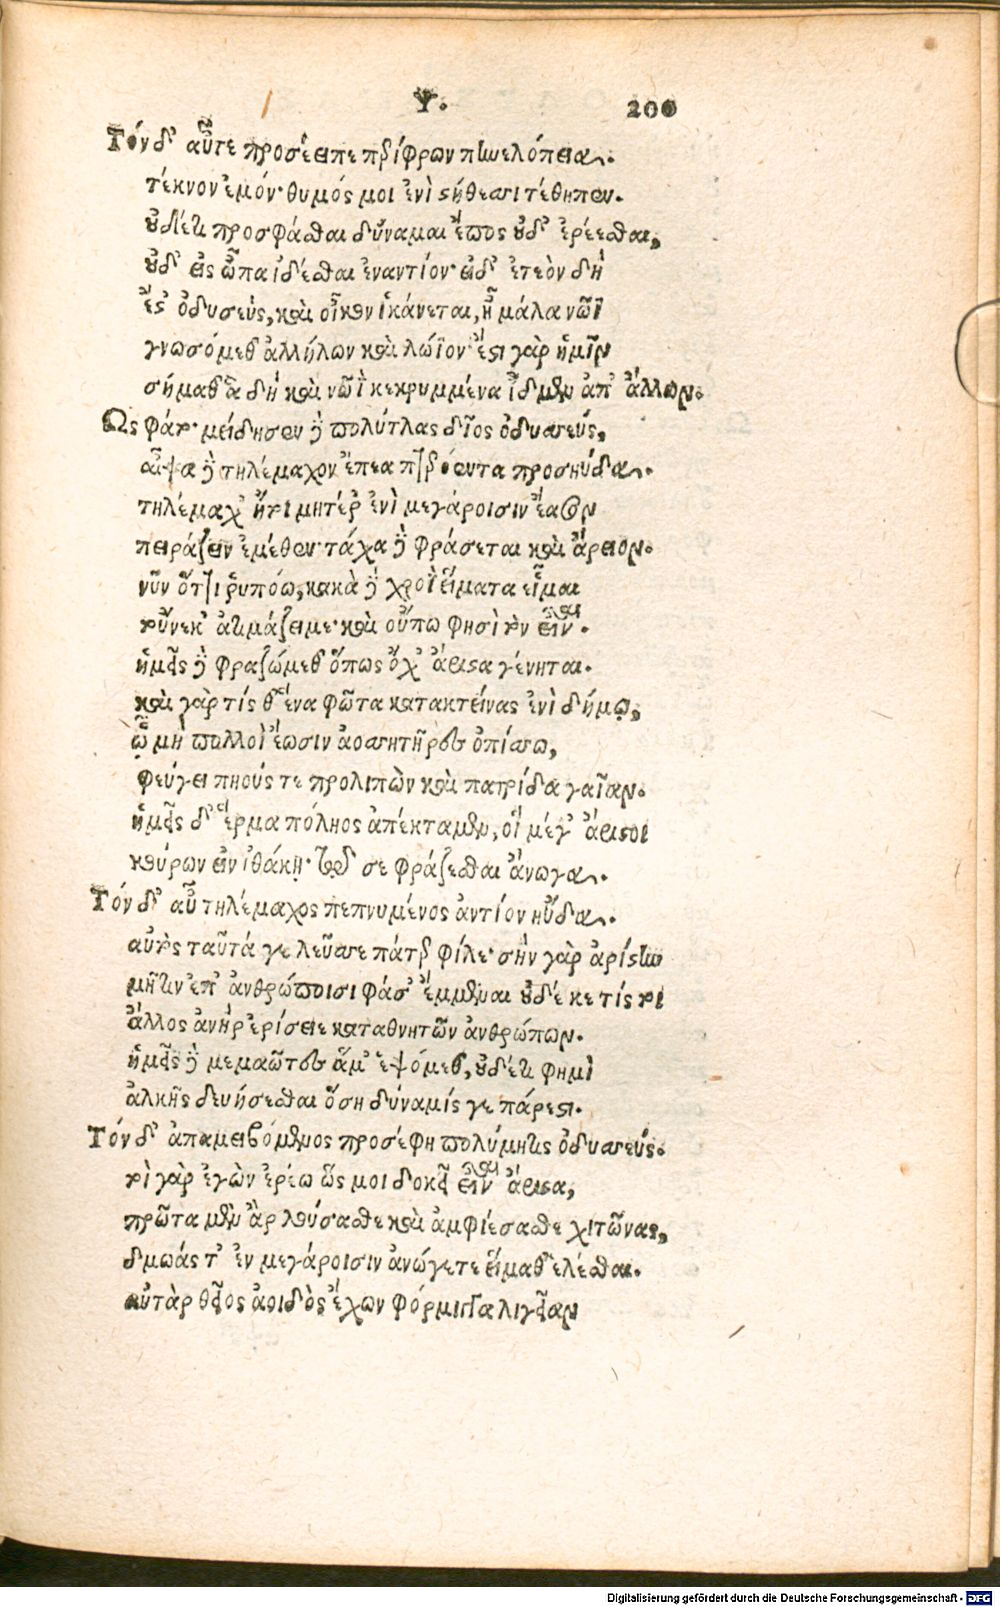 Ψ. 200
Τόνδ' αὖτε προσέειπε περίφρων πηνελόπεια.
τέκνον ἐμόν· θυμός μοι ἐνὶ στήθεσσι τέθηπεν.
οὐδέ τι προσφάσθαι δύναμαι ἔπος οὐδ' ἐρέεσθαι,
οὐδ' εἰς ὦπα ἰδέσθαι ἐναντίον· εἰ δ' ἐτεὸν δὴ
ἔστ' ὀδυσεύς, καὶ οἶκον ἱκάνεται, ἦ μάλα νῶϊ
γνωσόμεθ' ἀλλήλων καὶ λώϊον· ἔστι γὰρ ἡμῖν
σήμαθ' ἃ δὴ καὶ νῶϊ κεκρυμμένα ἴδμεν ἀπ' ἄλλων.
Ὣς φάτ'· μείδησεν δὲ πολύτλας δῖος ὀδυσσεύς,
αἶψα δὲ τηλέμαχον ἔπεα πτερόεντα προσηύδα.
τηλέμαχ' ἤτοι μητέρ' ἐνὶ μεγάροισιν ἔασον
πειράζειν ἐμέθεν· τάχα δὲ φράσεται καὶ ἄρειον.
νῦν ὅττι ῥυπόω, κακὰ δὲ χροῒ εἵματα εἷμαι
τοὔνεκ' ἀτιμάζει με· καὶ οὔπω φησὶ τὸν εἶναι.
ἡμεῖς δὲ φραζώμεθ' ὅπως ὄχ' ἄριστα γένηται.
καὶ γὰρ τίς θ' ἕνα φῶτα κατακτείνας ἐνὶ δήμῳ,
ᾧ μὴ πολλοὶ ἔωσιν ἀοσσητῆρες ὀπίσσω,
φεύγει πηούς τε προλιπὼν καὶ πατρίδα γαῖαν.
ἡμεῖς δ' ἕρμα πόληος ἀπέκταμεν, οἳ μέγ' ἄριστοι
κούρων εἰν ἰθάκῃ· τὰ δέ σε φράζεσθαι ἄνωγα.
Τόν δ' αὖ τηλέμαχος πεπνυμένος ἀντίον ηὔδα.
αὐτὸς ταῦτά γε λεῦσσε πάτερ φίλε· σὴν γὰρ ἀρίστην
μῆτιν ἐπ' ἀνθρώποισι φάσ' ἔμμεναι οὐδέ κε τίς τοι
ἄλλος ἀνὴρ ἐρίσειε καταθνητῶν ἀνθρώπων.
ἡμεῖς δὲ μεμαῶτες ἅμ' ἑψόμεθ', οὐδέ τι φημὶ
ἀλκῆς δευήσεσθαι ὅση δύναμίς γε πάρεστι.
Τόν δ' ἀπαμειβόμενος προσέφη πολύμητις ὀδυσσεύς.
τοὶ γὰρ ἐγὼν ἐρέω ὥς μοι δοκεῖ εἶναι ἄριστα,
πρῶτα μὲν ἂρ λούσασθε καὶ ἀμφιέσασθε χιτῶνας,
δμωάς τ' ἐν μεγάροισιν ἀνώγετε εἵμαθ' ἑλέσθαι.
αὐτὰρ θεῖος ἀοιδὸς ἔχων φόρμιγγα λιγεῖαν
Digitalisierung gefördert durch die Deutsche Forschungsgemeinschaft - DFG